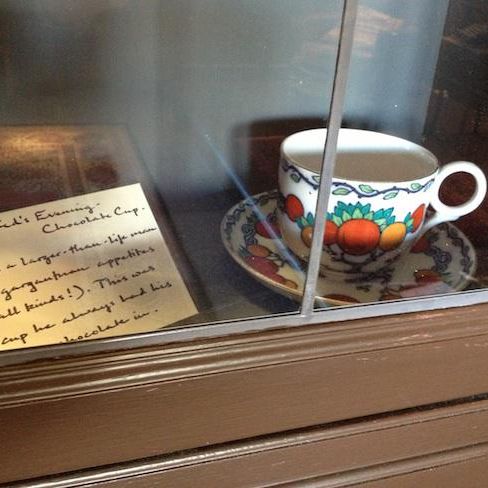 Evening
Chocolate Cup.
a larger-than-life man
gargantuan appetites
all kinds!). This was
cup he always had his
chocolate in.